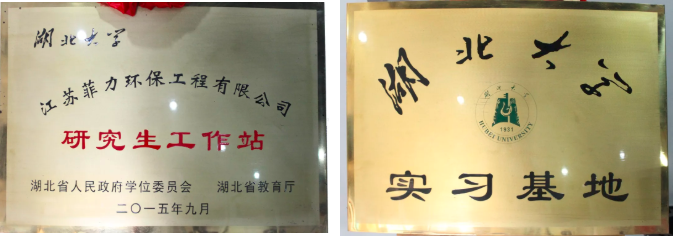 湖北大学
江苏菲力环保工程有限公司
研究生工作站
湖北省人民政府学位委员会 湖北省教育厅
二〇一五年九月
湖北大学
湖北大学
1931
HUBEI UNIVERSITY
实习基地